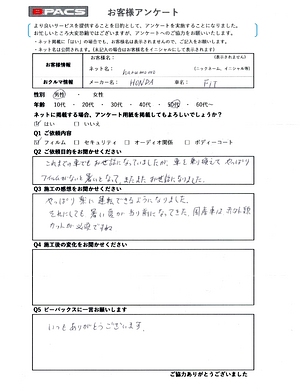 B-PACS お客様アンケート
より良いサービスを提供することを目的として、アンケートを実施することになりました。
お忙しいところ大変恐縮ではございますが、アンケートへのご協力をお願いいたします。
・ネット掲載に「はい」の場合でも、お客様名は表示されませんので、ご記入をお願いします。
・ネット名は公開されます。(未記入の場合はお客様名をイニシャルにして表示されます)
お客様情報
お客様名: (表示されません)
ネット名: (ニックネーム、イニシャル等)
おクルマ情報
メーカー名: HONDA 車名: FIT
性別 男性 ・ 女性
年齢 10代 ・ 20代 ・ 30代 ・ 40代 ・ 50代 ・ 60代~
ネットに掲載する場合、アンケート用紙を掲載してもよろしいでしょうか?
☑はい □いいえ
Q1 ご依頼内容
☑フィルム □セキュリティ □オーディオ関係 □ボディーコート
Q2 ご依頼目的をお聞かせください
これまでの車でもお世話になっていましたが、車を乗り換えて やっぱり
フィルムがないと暑いとなって、またまたお世話になりました。
Q3 施工の感想をお聞かせください
やっぱり 楽に 運転できるようになりました。
それにしても 暑い夏が当り前になってきた、国産車は赤外線
カットが必須ですね
Q4 施工後の変化をお聞かせください
Q5 ビーパックスに一言お願いします
いつもありがとうございます。
ご協力ありがとうございました